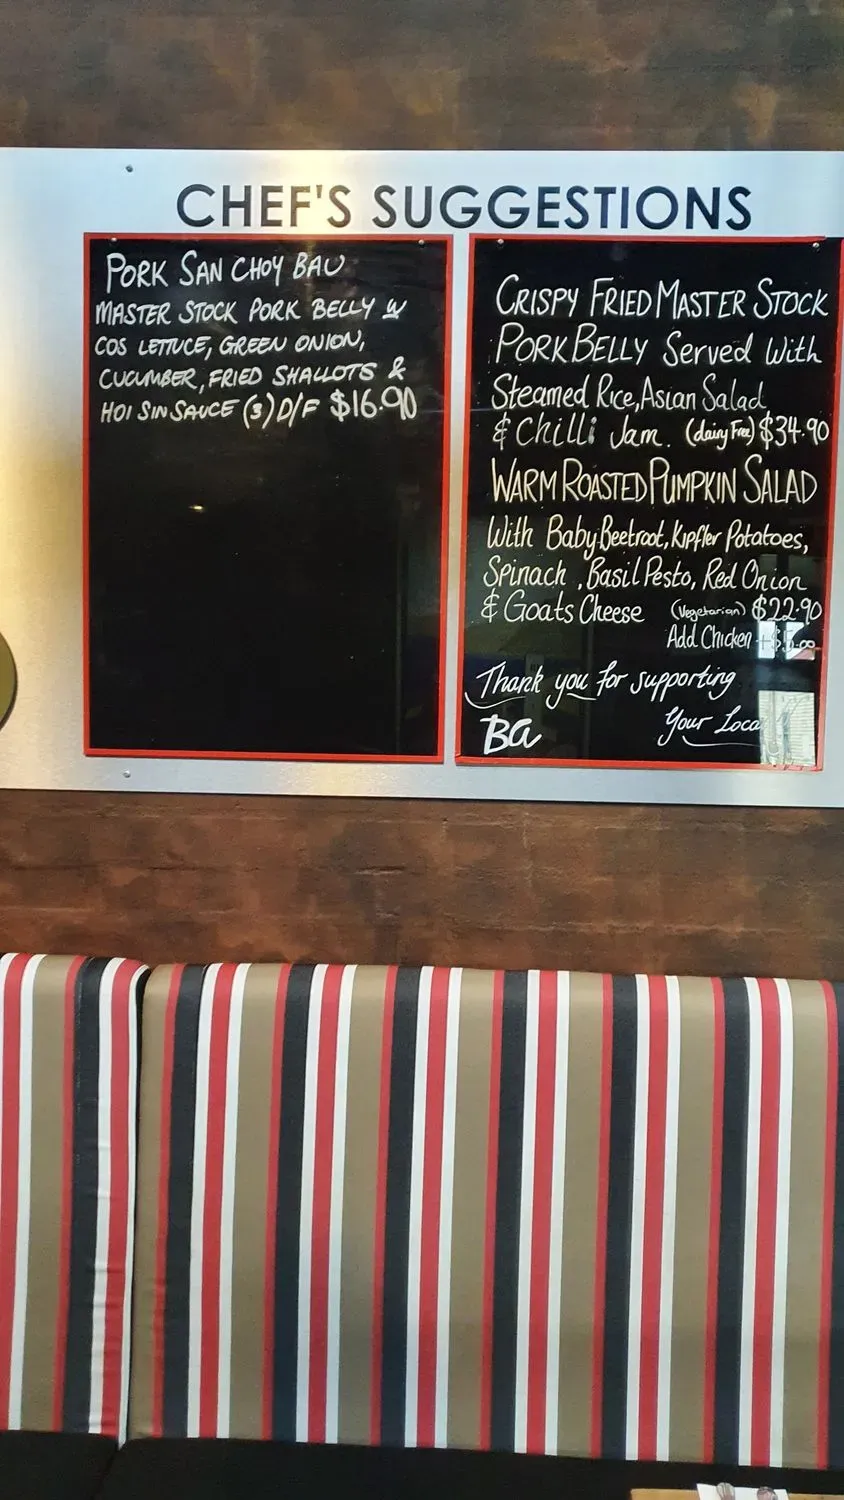 CHEF'S SUGGESTIONS
PORK SAN CHOY BAU
MASTER STOCK PORK BELLY W
COS LETTUCE, GREEN ONION,
CUCUMBER, FRIED SHALLOTS &
HOI SIN SAUCE (3) D/F $16.90
CRISPY FRIED MASTER STOCK
PORK BELLY Served With
Steamed Rice, Asian Salad
& Chilli Jam. (dairy Free) $34.90
WARM ROASTED PUMPKIN SALAD
With Baby Beetroot, Kipfler Potatoes,
Spinach, Basil Pesto, Red Onion
& Goats Cheese (Vegetarian) $22.90
Add Chicken +$5.00
Thank you for supporting
Your Local